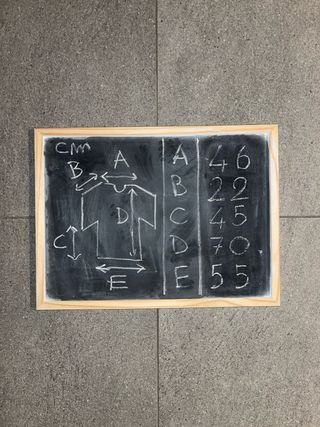 cm
A
B
D
C
E
A 46
B 22
C 45
D 70
E 55